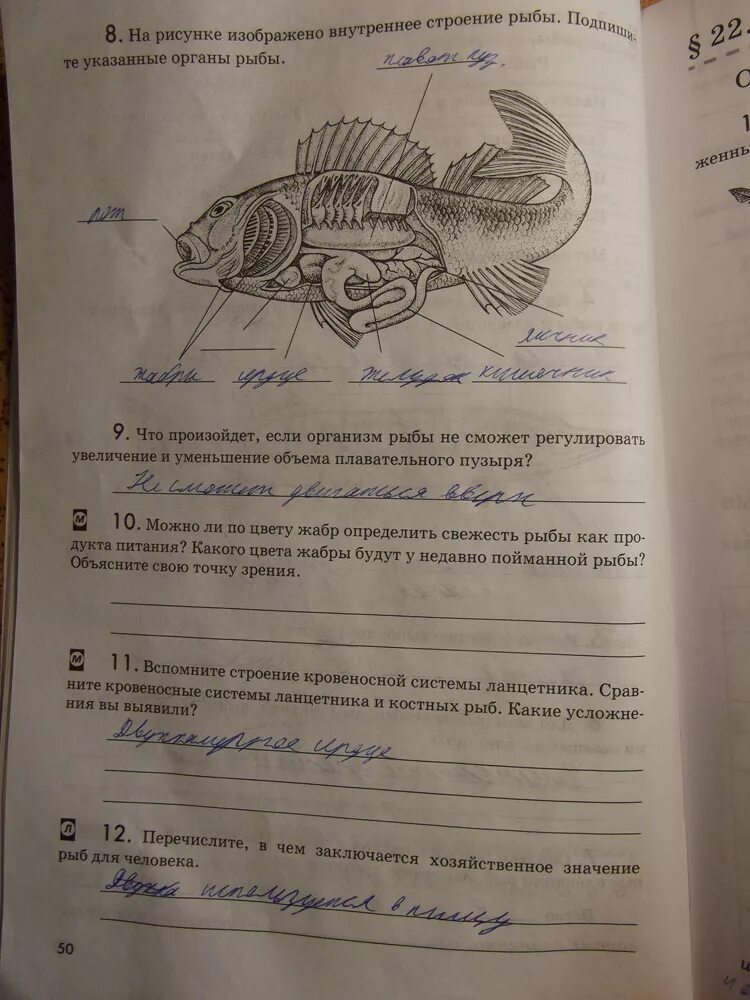 8. На рисунке изображено внутреннее строение рыбы. Подпиши-
те указанные органы рыбы.
плават пуз.
рот
яичник
жабры сердце желудок кишечник
9. Что произойдет, если организм рыбы не сможет регулировать
увеличение и уменьшение объема плавательного пузыря?
Не сможет двигаться вверх
м 10. Можно ли по цвету жабр определить свежесть рыбы как про-
дукта питания? Какого цвета жабры будут у недавно пойманной рыбы?
Объясните свою точку зрения.
м 11. Вспомните строение кровеносной системы ланцетника. Срав-
ните кровеносные системы ланцетника и костных рыб. Какие усложне-
ния вы выявили?
Двухкамерное сердце
л 12. Перечислите, в чем заключается хозяйственное значение
рыб для человека.
используется в пищу
50
§ 22.
С
1
женны